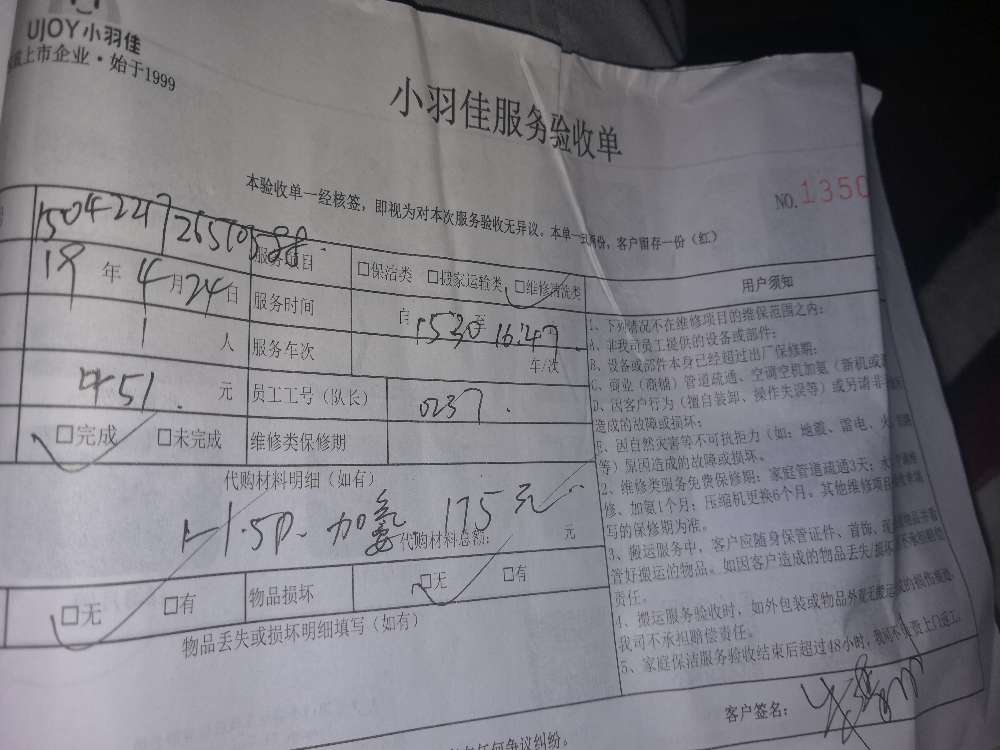 UJOY小羽佳
上市企业·始于1999
小羽佳服务验收单
NO.1350
本验收单一经核签，即视为对本次服务验收无异议。本单一式两份，客户留存一份（红）
服务项目 □保洁类 □搬家运输类 □维修清洗类 用户须知
19年4月24日 服务时间 自1530至16:47
1人 服务车次 车/次
451.元 员工工号（队长） 0237.
□完成 □未完成 维修类保修期
代购材料明细（如有）
1.5P. 加氨 175元
代购材料总额: 元
□无 □有 物品损坏 □无 □有
物品丢失或损坏明细填写（如有）
1、下列情况不在维修项目的维保范围之内:
A、非我司员工提供的设备或部件;
B、设备或部件本身已经超过出厂保修期;
C、商业（商铺）管道疏通、空调空机加氨（新机或
D、因客户行为（擅自装卸、操作失误等）或另请非
造成的故障或损坏;
E、因自然灾害等不可抗拒力（如: 地震、雷电、火
等）原因造成的故障或损坏。
2、维修类服务免费保修期: 家庭管道疏通3天; 水
修、加氨1个月; 压缩机更换6个月。其他维修项目
写的保修期为准。
3、搬运服务中，客户应随身保管证件、首饰、
管好搬运的物品。如因客户造成的物品丢失/损坏
责任。
4、搬运服务验收时，如外包装或物品外观无搬运
我司不承担赔偿责任。
5、家庭保洁服务验收结束后超过48小时，我司不负责上门返工。
客户签名:
任何争议纠纷。